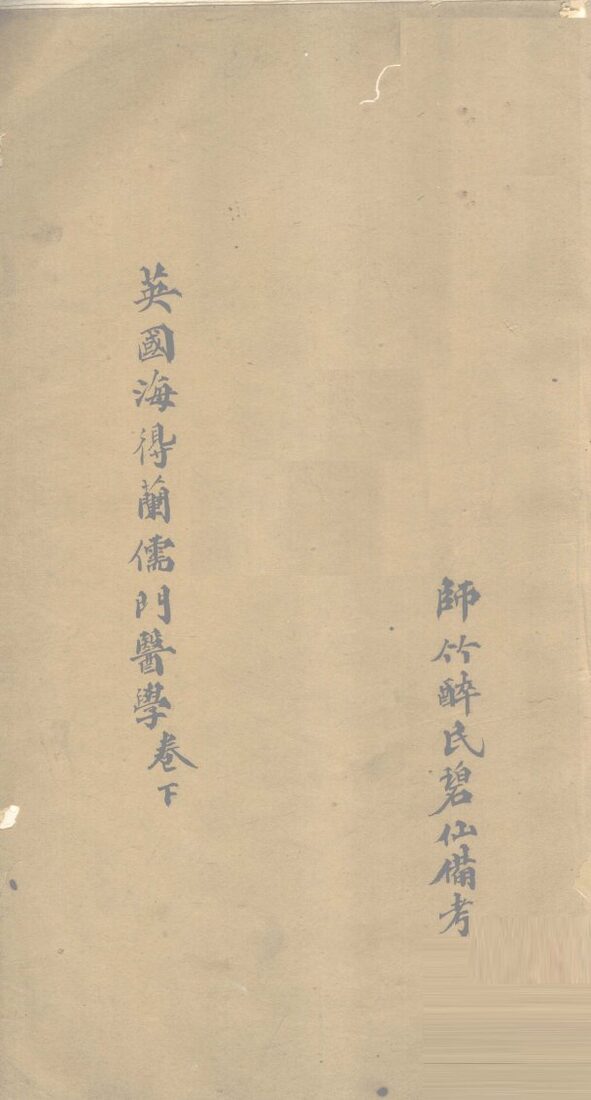 師竹醉民碧仙備考
英國海得蘭儒門醫學卷下